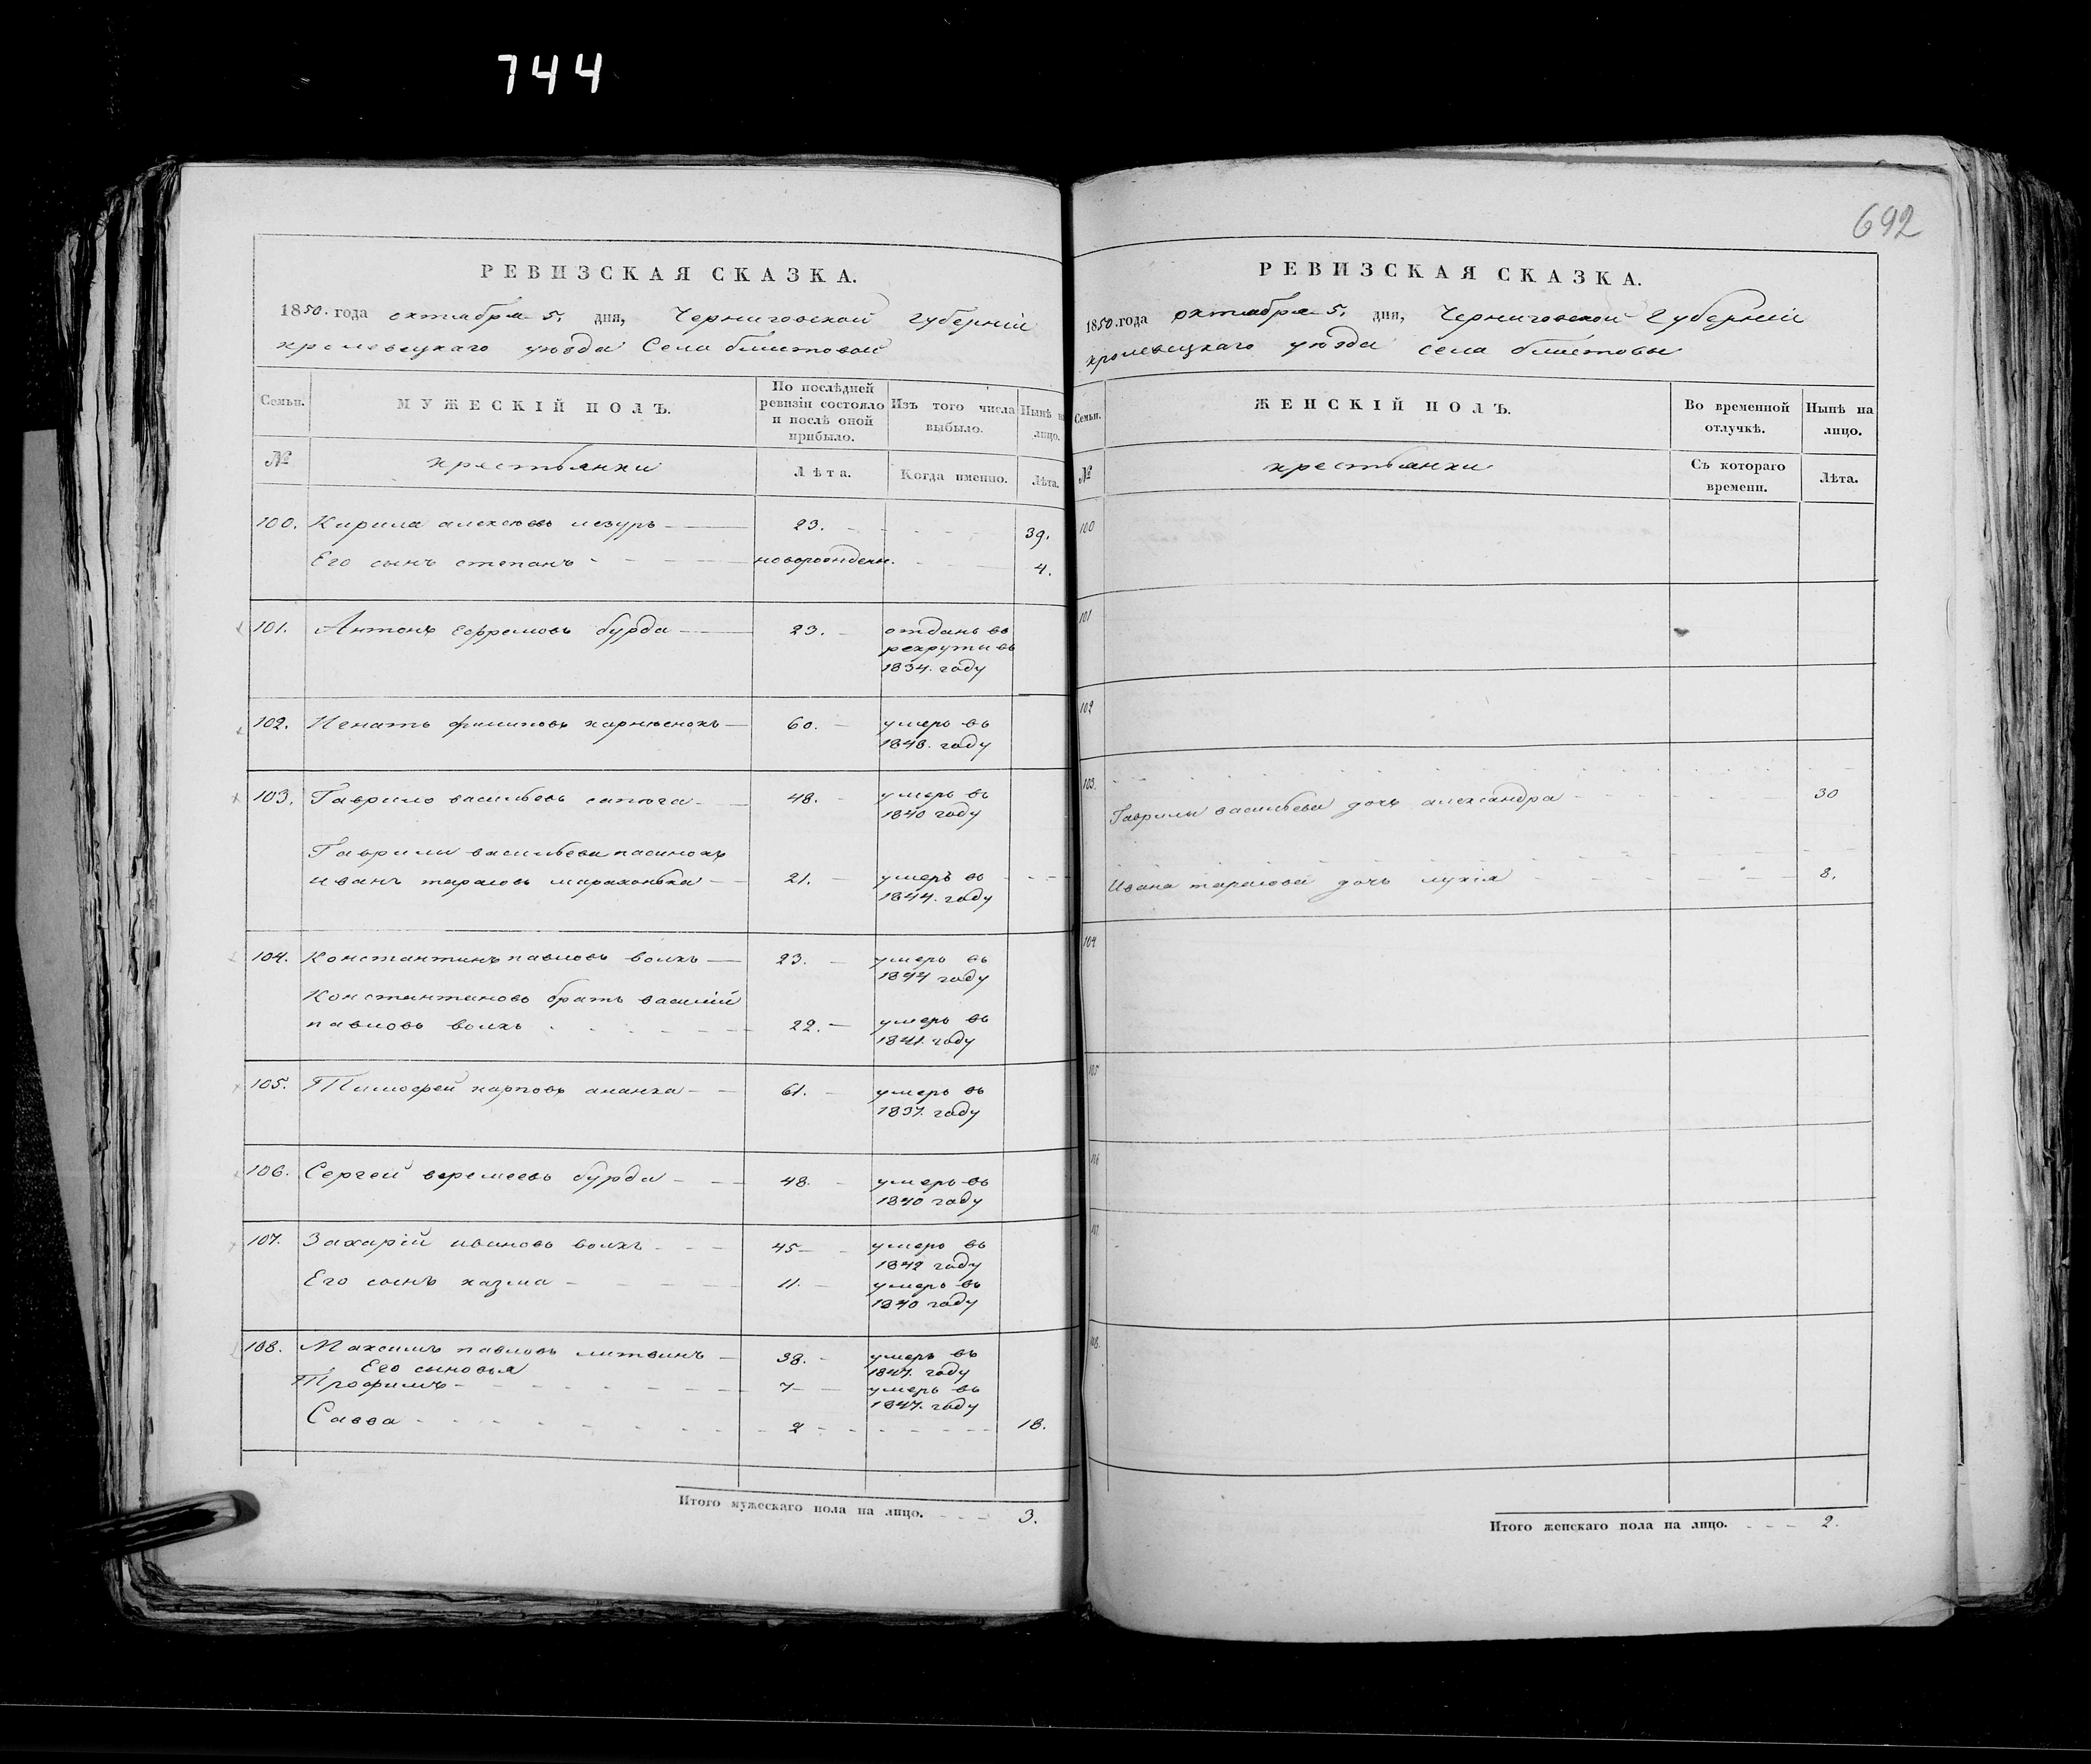 744
692
РЕВИЗСКАЯ СКАЗКА.
1850. года октября 5. дня, Черниговской губерніи
кролевецкаго уѣзда Села
Семьи. МУЖЕСКІЙ ПОЛЪ. По послѣдней ревизіи состояло и послѣ оной прибыло. Изъ того числа выбыло. Нынѣ на лицо.
№ Лѣта. Когда именно. Лѣта.
100. Кирила алексѣевъ мезуръ 23. 39.
Его сынъ степанъ новорожден. 4.
101. Антонъ ефремовъ бурда 23. отданъ въ
рекруты въ
1834. году
102. Игнатъ филиповъ 60. умеръ въ
1848. году
103. Гаврило васильевъ 48. умеръ въ
1840 году
Гаврилы васильева пасинокъ
иванъ тарасовъ 21. умеръ въ
1844. году
104. Константинъ павловъ волкъ 23. умеръ въ
1844 году
Константиновъ братъ василій
павловъ волкъ 22. умеръ въ
1841. году
105. Тимофей карповъ ананка 61. умеръ въ
1837. году
106. Сергей веремеевъ бурда 48. умеръ въ
1840 году
107. Захарій ивановъ волкъ 45 умеръ въ
1842 году
Его сынъ казма 11. умеръ въ
1840 году
108. Максимъ павловъ литвинъ 38. умеръ въ
1847. году
Его сыновья
Трофимъ 7 умеръ въ
1847. году
Савва 2 18.
Итого мужескаго пола на лицо. 3.
РЕВИЗСКАЯ СКАЗКА.
1850. года октября 5. дня, Черниговской Губерніи
кролевецкаго уѣзда села
Семьи. ЖЕНСКІЙ ПОЛЪ. Во временной отлучкѣ. Нынѣ на лицо.
№ крестьянки Съ котораго времени. Лѣта.
100
101
102
103. Гаврилы васильева дочь александра 30
Ивана тарасова дочь лукія 8.
104
105
106
107
108.
Итого женскаго пола на лицо. 2.